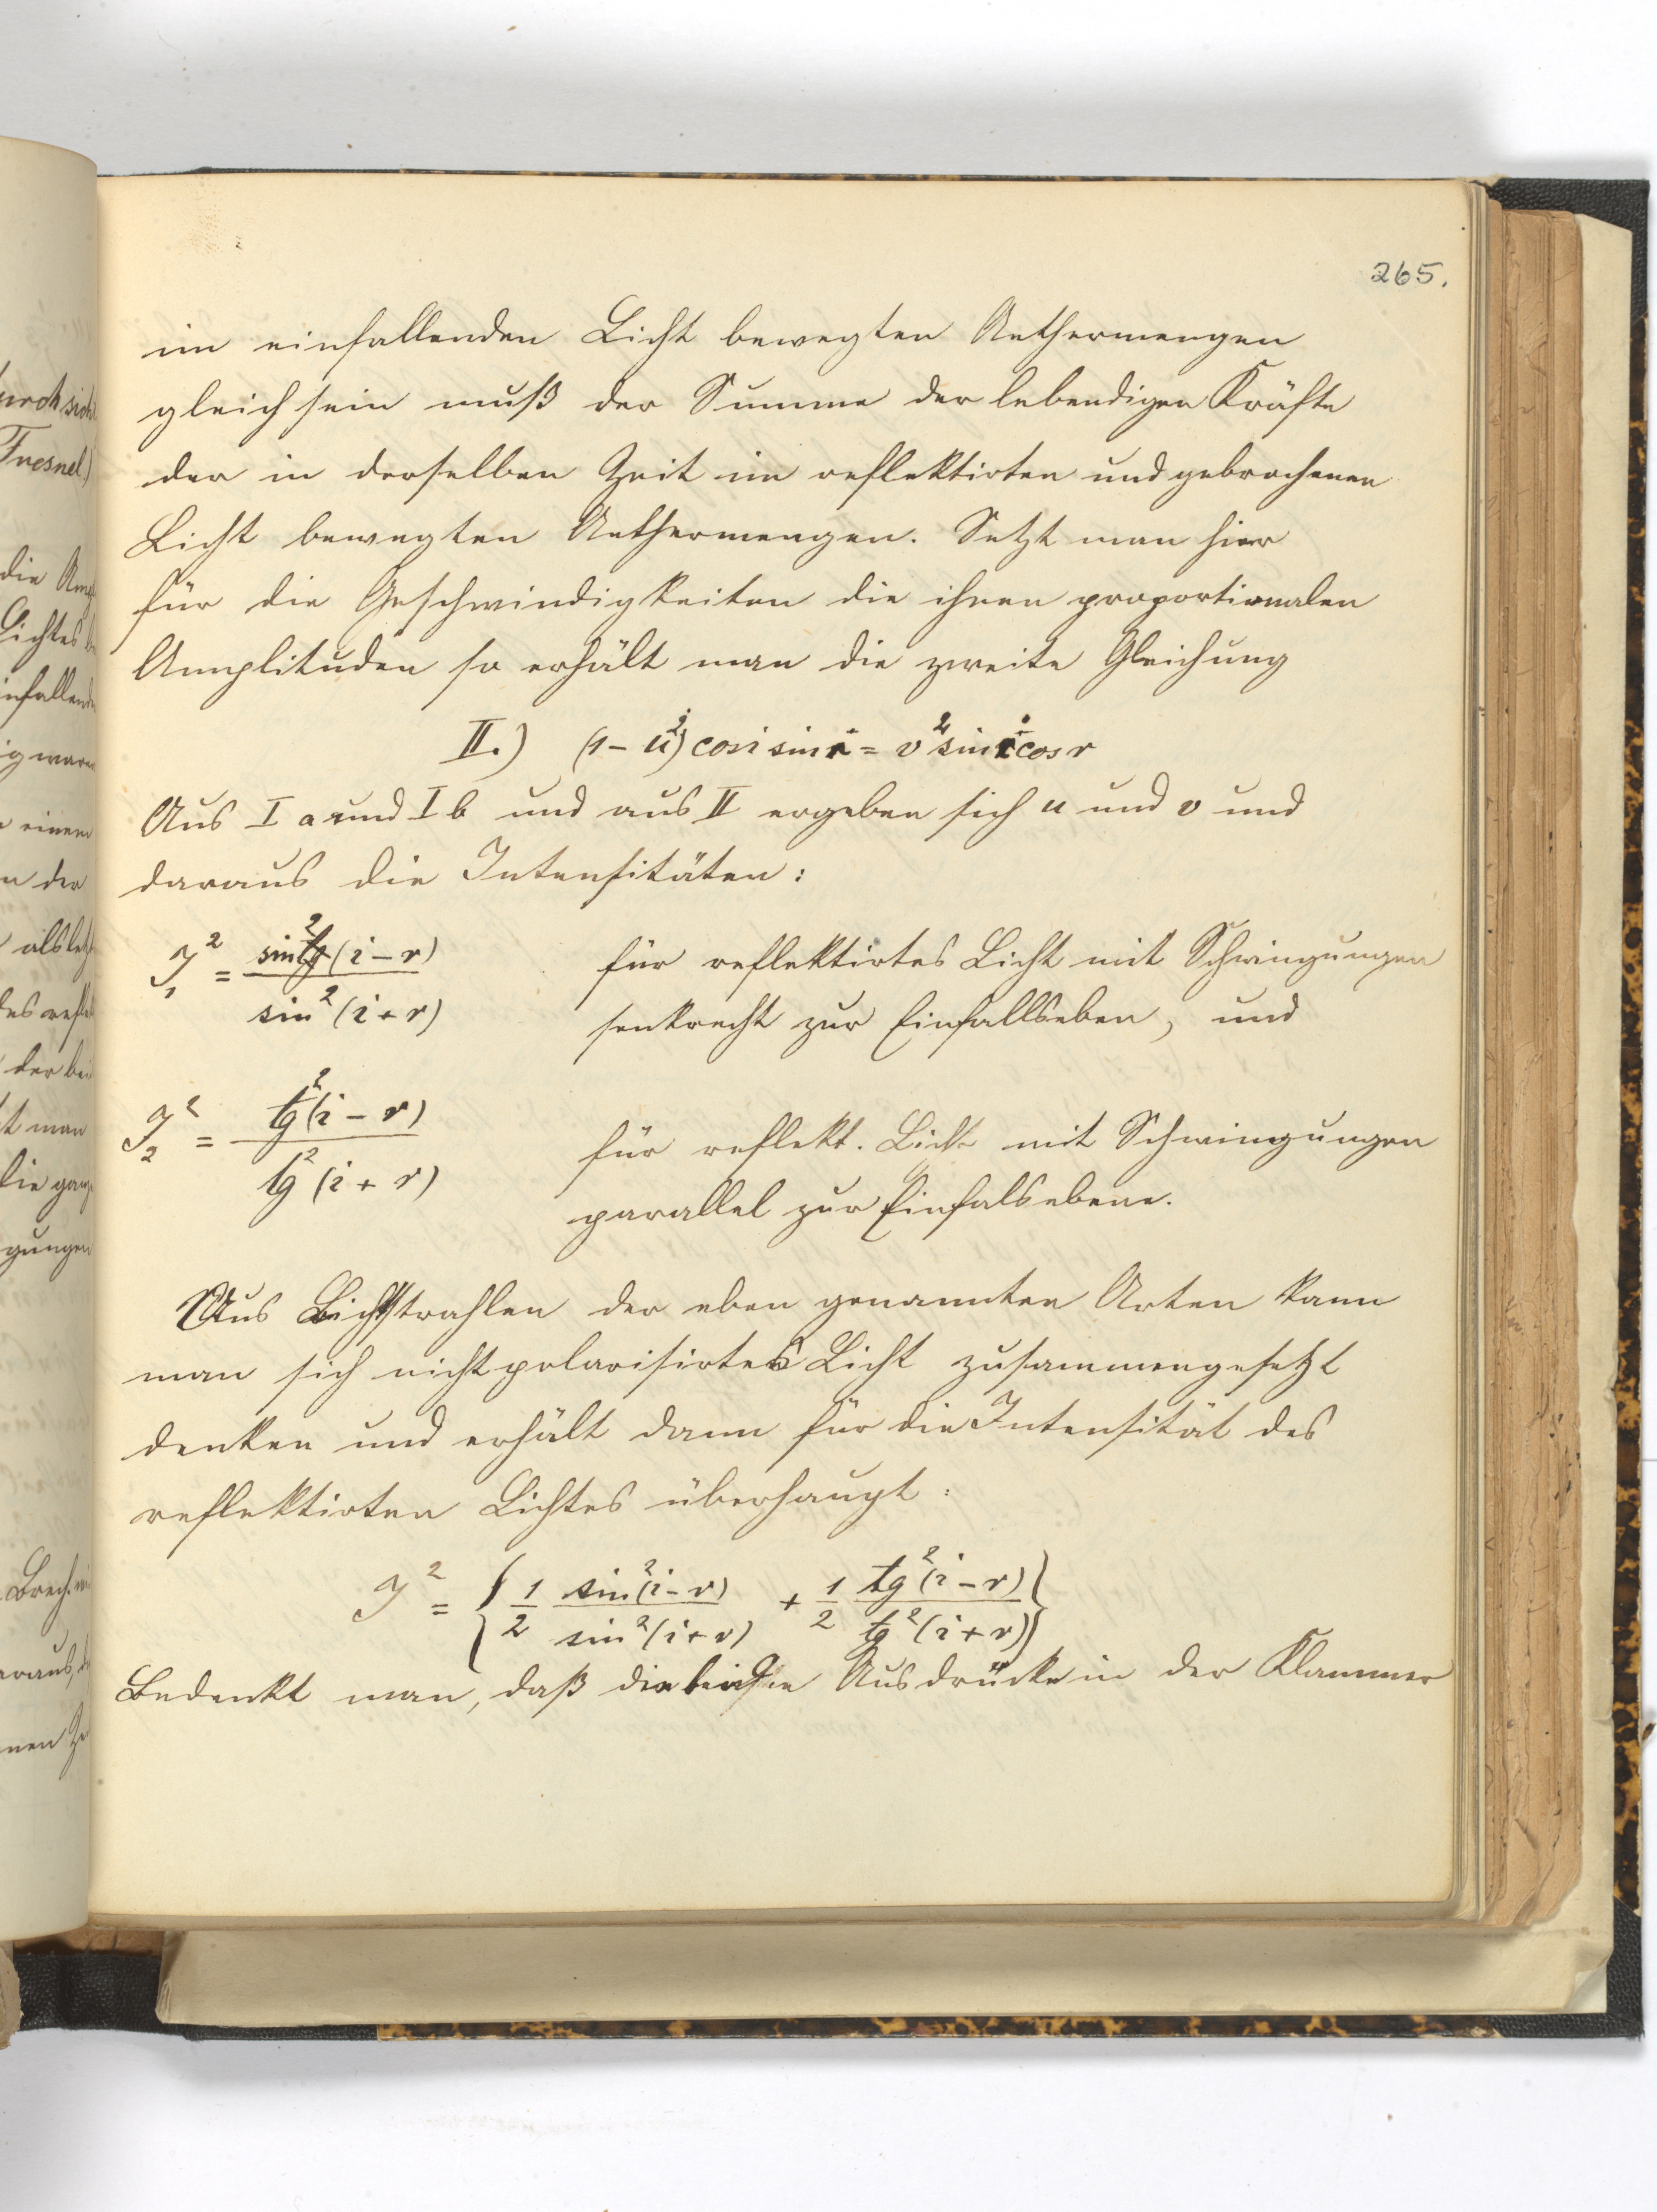 265.
im einfallenden Licht bewegten Aethermengen
gleich sein muß der Summe der lebendigen Kräfte
der in derselben Zeit im reflektirten und gebrochenen
Licht bewegten Aethermengen. Setzt man hier
für die Geschwindigkeiten die ihnen proportionalen
Amplituden so erhält man die zweite Gleichung
II.) (1 - u²) cos i sin r = v² sin i cos r
Aus I a und I b und aus II ergeben sich u und v und
daraus die Intensitäten:
J₁² = sin²(i - r) / sin²(i + r) für reflektirtes Licht mit Schwingungen
senkrecht zur Einfallseben, und
J₂² = tg²(i - r) / tg²(i + r) für reflekt. Licht mit Schwingungen
parallel zur Einfalsebene.
Aus Lichtstrahlen der eben genannten Arten kann
man sich nicht polarisirtes Licht zusammengesetzt
denken und erhält dann für die Intensität des
reflektirten Lichtes überhaupt:
J² = { 1/2 sin²(i - r) / sin²(i + r) + 1/2 tg²(i - r) / tg²(i + r) }
Bedenkt man, daß die beiden Ausdrücke in der Klammer